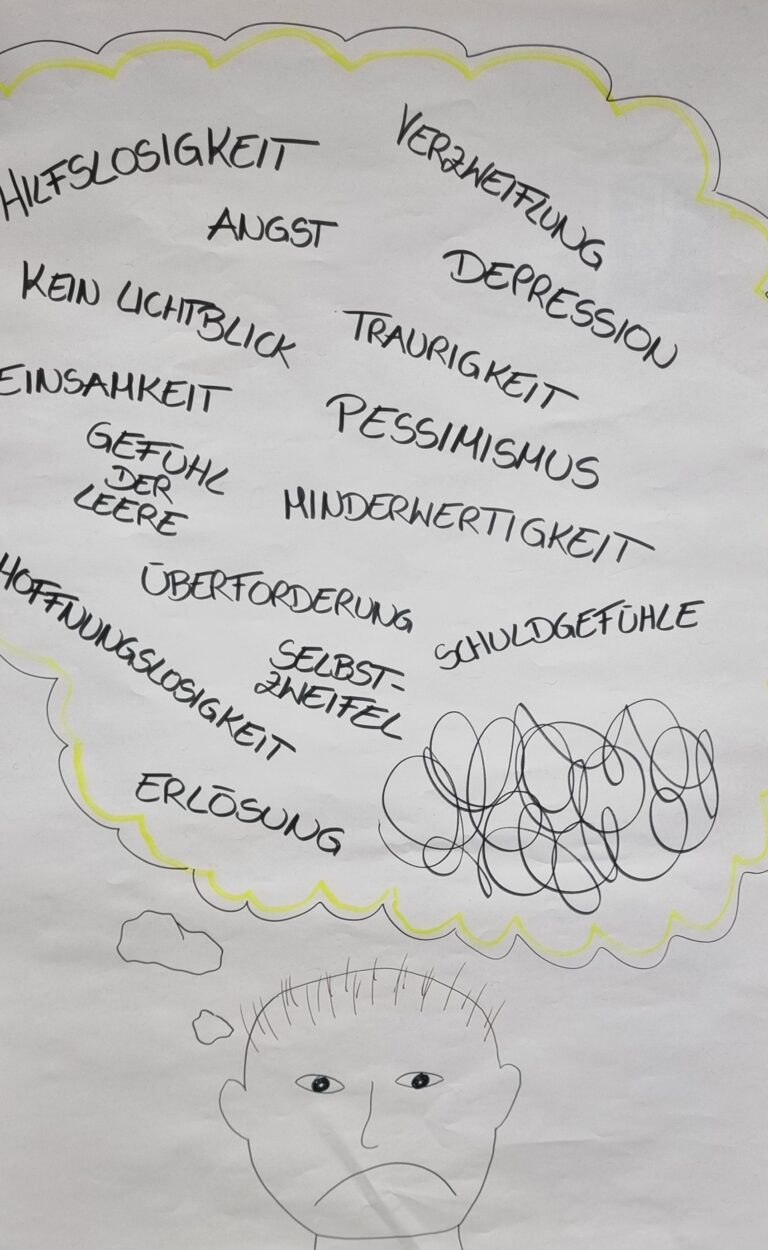 HILFSLOSIGKEIT
VERZWEIFLUNG
ANGST
DEPRESSION
KEIN LICHTBLICK
TRAURIGKEIT
EINSAMKEIT
PESSIMISMUS
GEFÜHL
DER
LEERE
MINDERWERTIGKEIT
ÜBERFORDERUNG
HOFFNUNGSLOSIGKEIT
SCHULDGEFÜHLE
SELBST-
ZWEIFEL
ERLÖSUNG